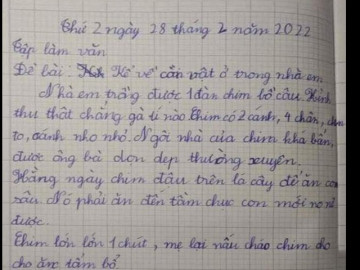 Thứ 2 ngày 28 tháng 2 năm 2022
Tập làm văn
Đề bài: Kể về cắn vật ở trong nhà em
Nhà em trồng được 1 đàn chim bồ câu. Hình
thu thật chẳng gà tí nào. Chim có 2 cánh, 4 chân, chim
to, cánh nho nhỏ. Ngôi nhà của chim khá bẩn,
được ông bà dọn dẹp thường xuyên.
Hằng ngày chim đậu trên lá cây để ăn con
sâu. Nó phải ăn đến tầm chục con mới no nê
được.
Chim lớn lớn 1 chút, mẹ lại nấu cháo chim cho
cho em tẩm bổ